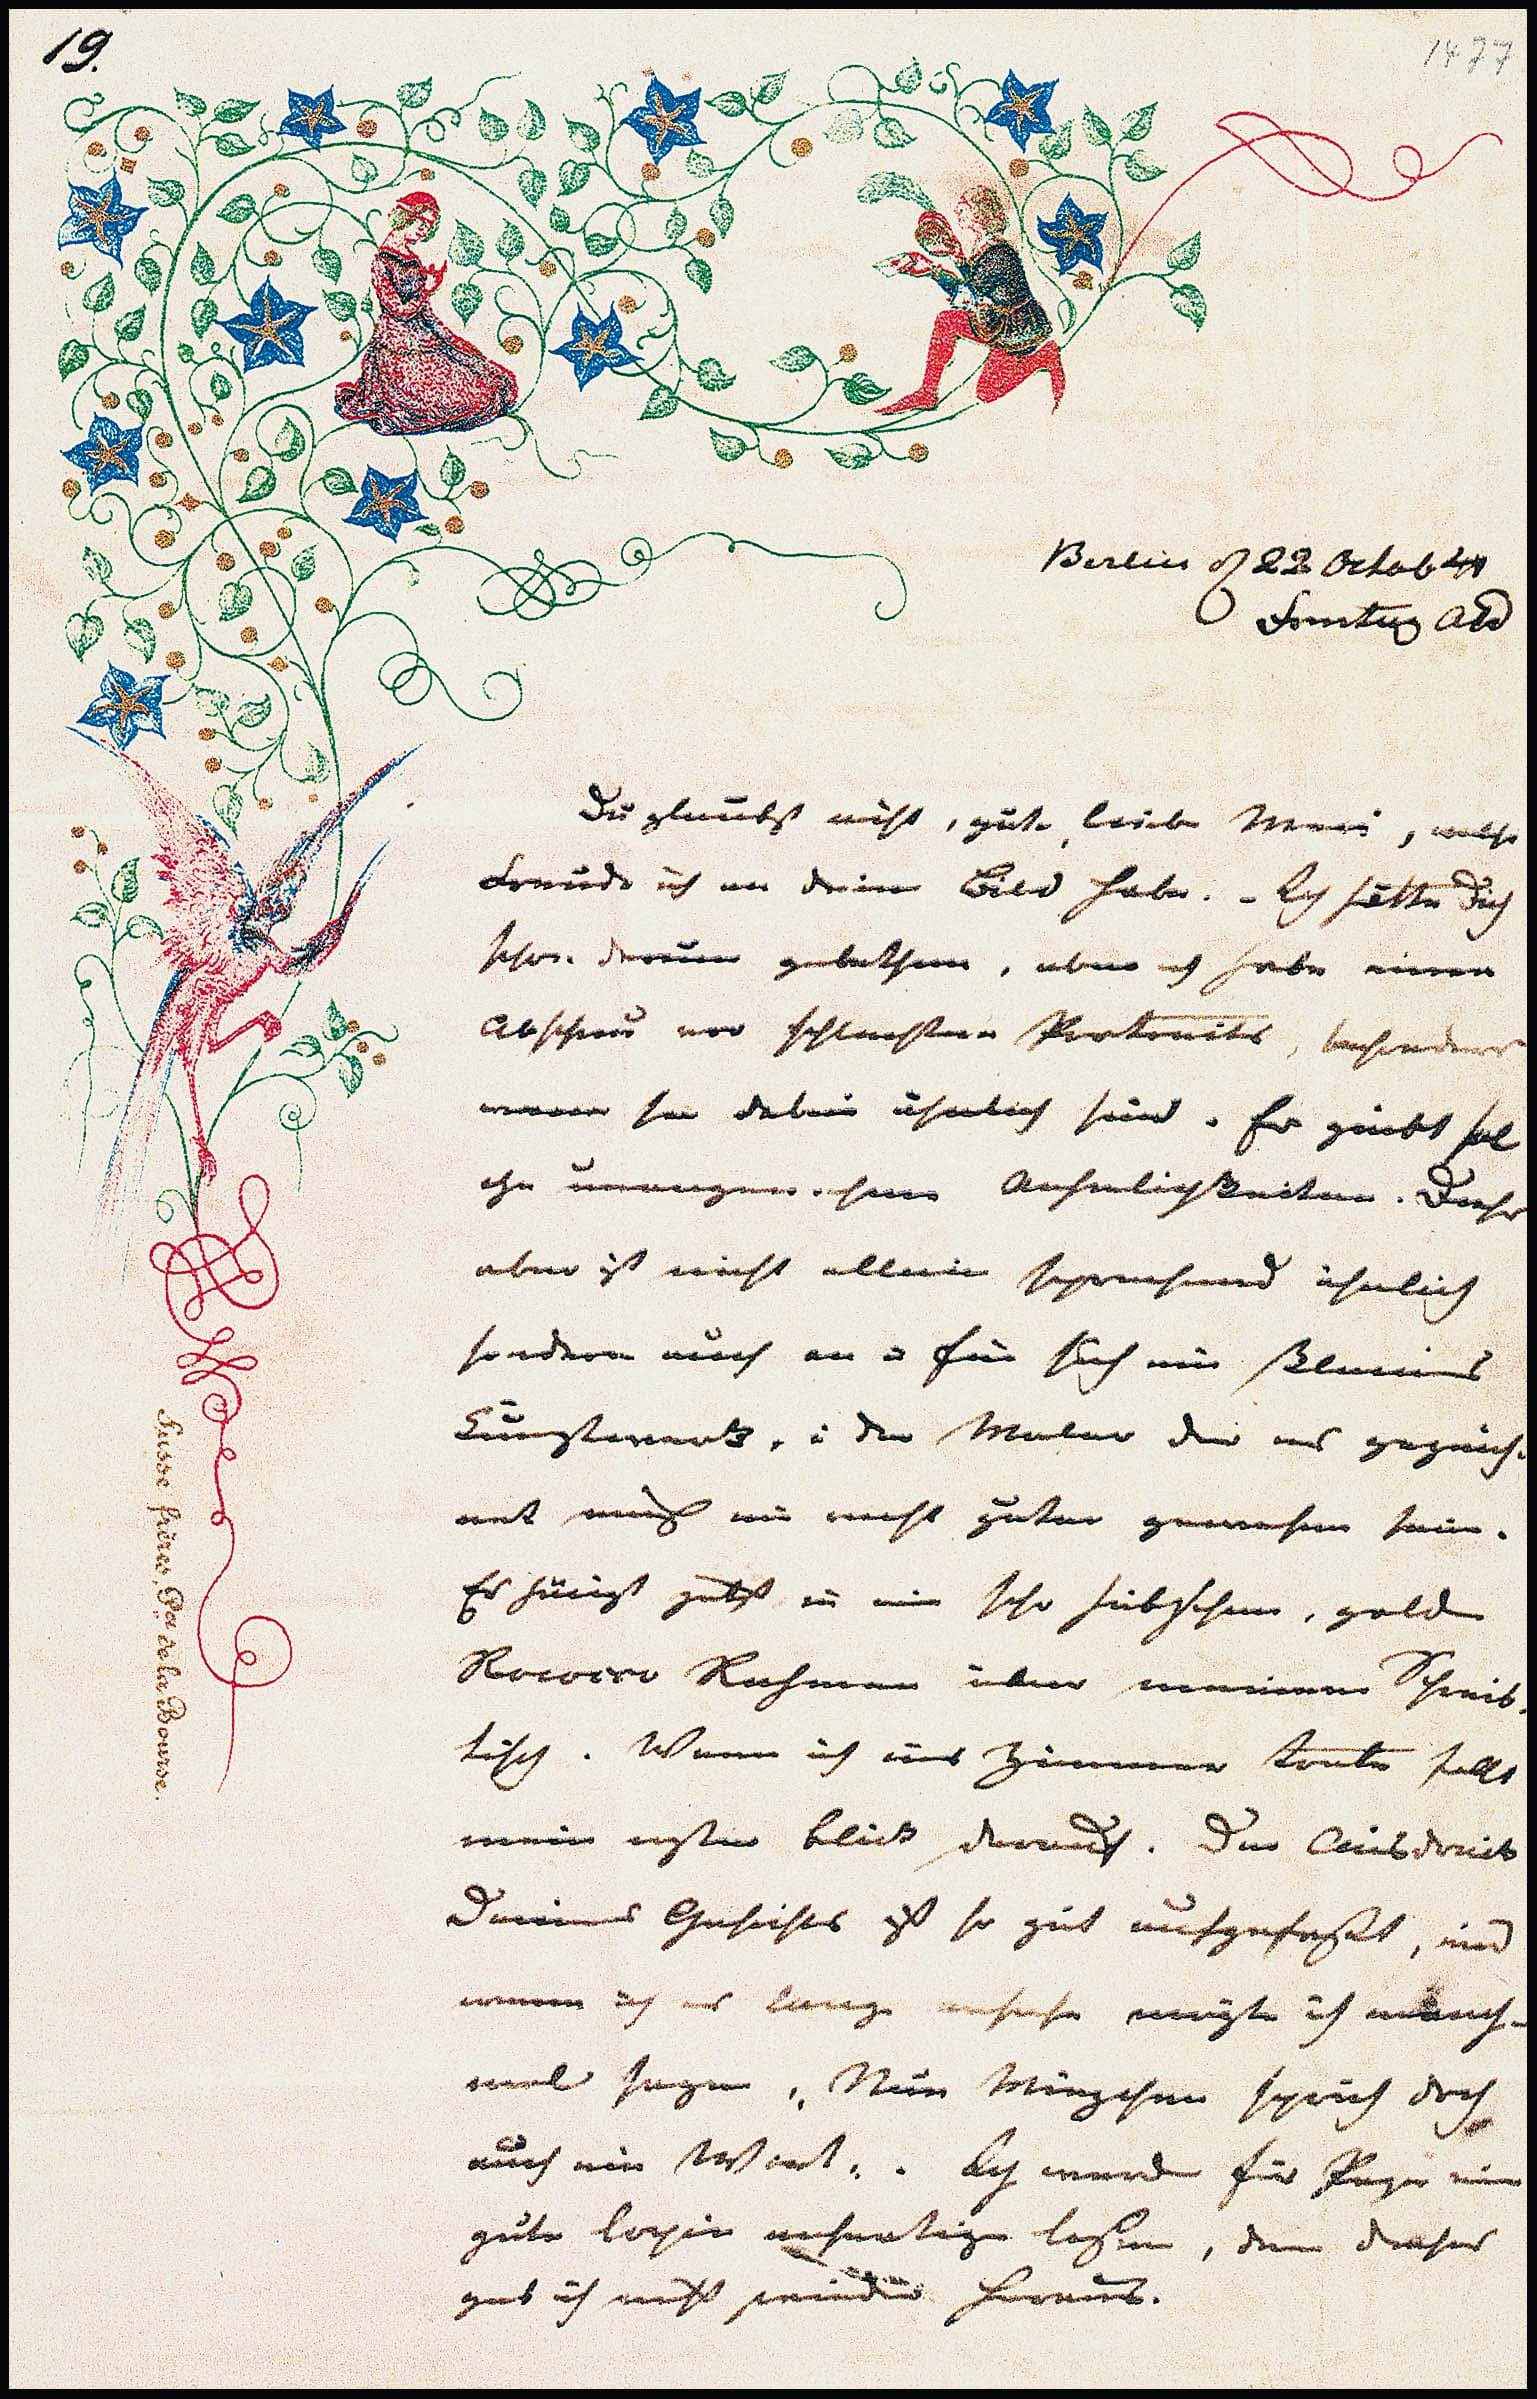 19.
1477
Berlin d 22 Octob 41
Sontag Abd
Du glaubst nicht, gute, liebe Mari, welche
Freude ich an dein Bild habe. - Ich hätte Dich
schon darum gebethen, aber ich habe einen
Abscheu vor schlechten Portraits, besonders
wenn sie dabei ähnlich sind. Es giebt sol
che unangenehme Aehnlichkeiten. Dieses
aber ist nicht allein sprechend ähnlich
sondern auch an u für sich ein kleines
Kunstwerk, u der Maler der es gezeich-
net muß ein recht guter gewesen sein.
Es hängt jetzt in ein sehr hübschen, golden
Rococco Rahmen über meinem Schreib-
tisch. Wenn ich ins Zimmer trete fällt
mein erster Blick darauf. Der Ausdruck
Deines Gesichts ist so gut aufgefaßt, und
wenn ich es lange ansehe mögte ich manch-
mal sagen, "Nun Miezchen sprich doch
auch ein Wort". Ich werde für Papa eine
gute Copie anfertigen laßen, den dieses
geb ich nicht wieder heraus.
Susse frères, Pce de la Bourse.